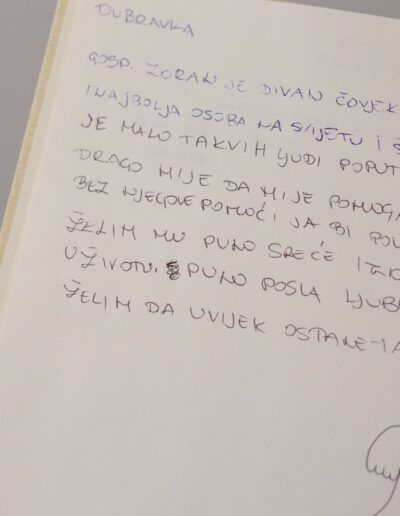 DUBRAVKA
GOSP. ZORAN JE DIVAN ČOVJEK
I NAJBOLJA OSOBA NA SVIJETU I
JE MALO TAKVIH LJUDI POPUT
DRAGO MI JE DA MI JE POMOGA
BEZ NJEGOVE POMOĆI JA BI
ŽELIM MU PUNO SREĆE I
U ŽIVOTU. PUNO POSLA LJUB
ŽELIM DA UVIJEK OSTANE